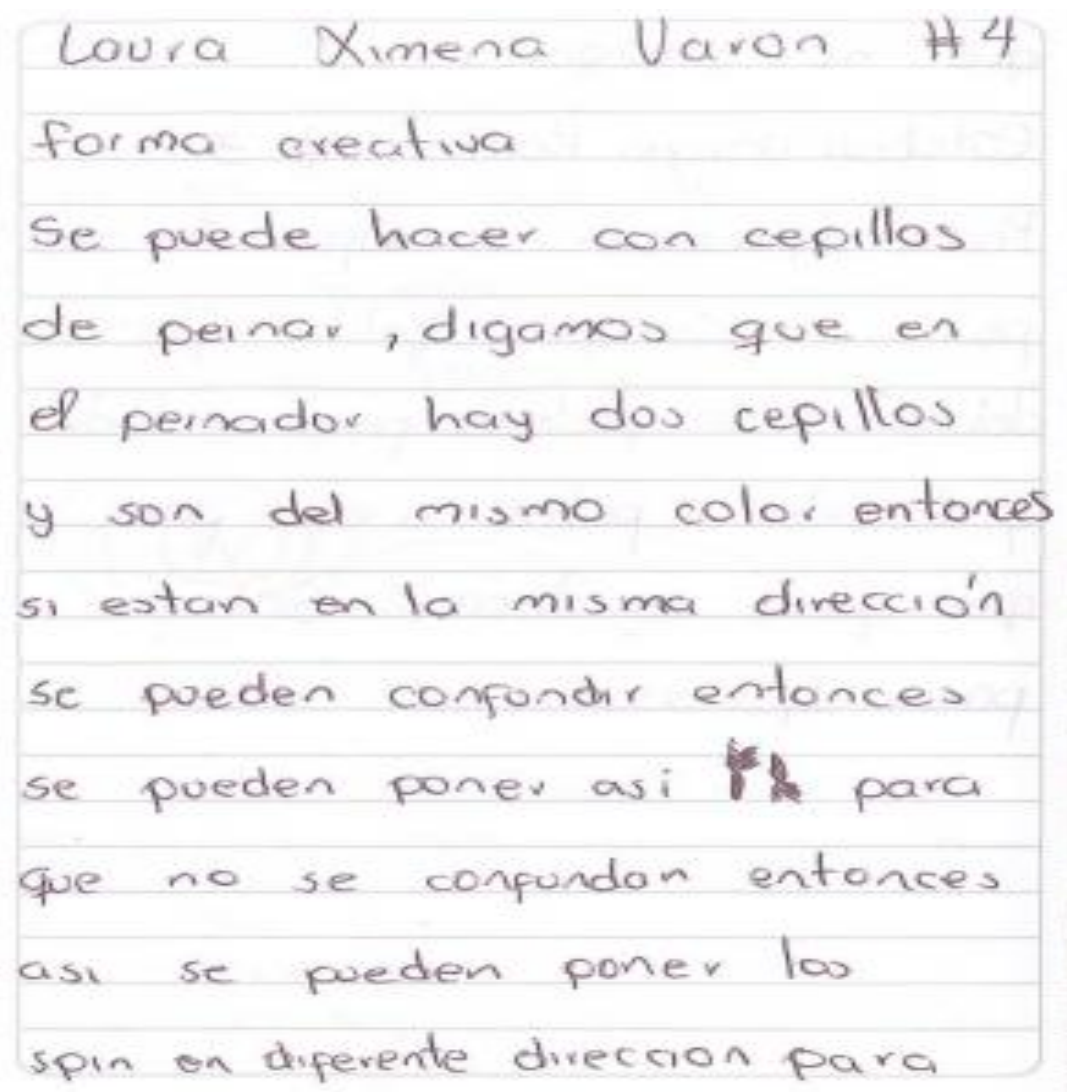 Laura Ximena Varon #4
forma creativa
Se puede hacer con cepillos
de peinar, digamos que en
el peinador hay dos cepillos
y son del mismo color entonces
si estan en la misma dirección
se pueden confundir entonces
se pueden poner asi para
que no se confundan entonces
asi se pueden poner los
spin en diferente direccion para